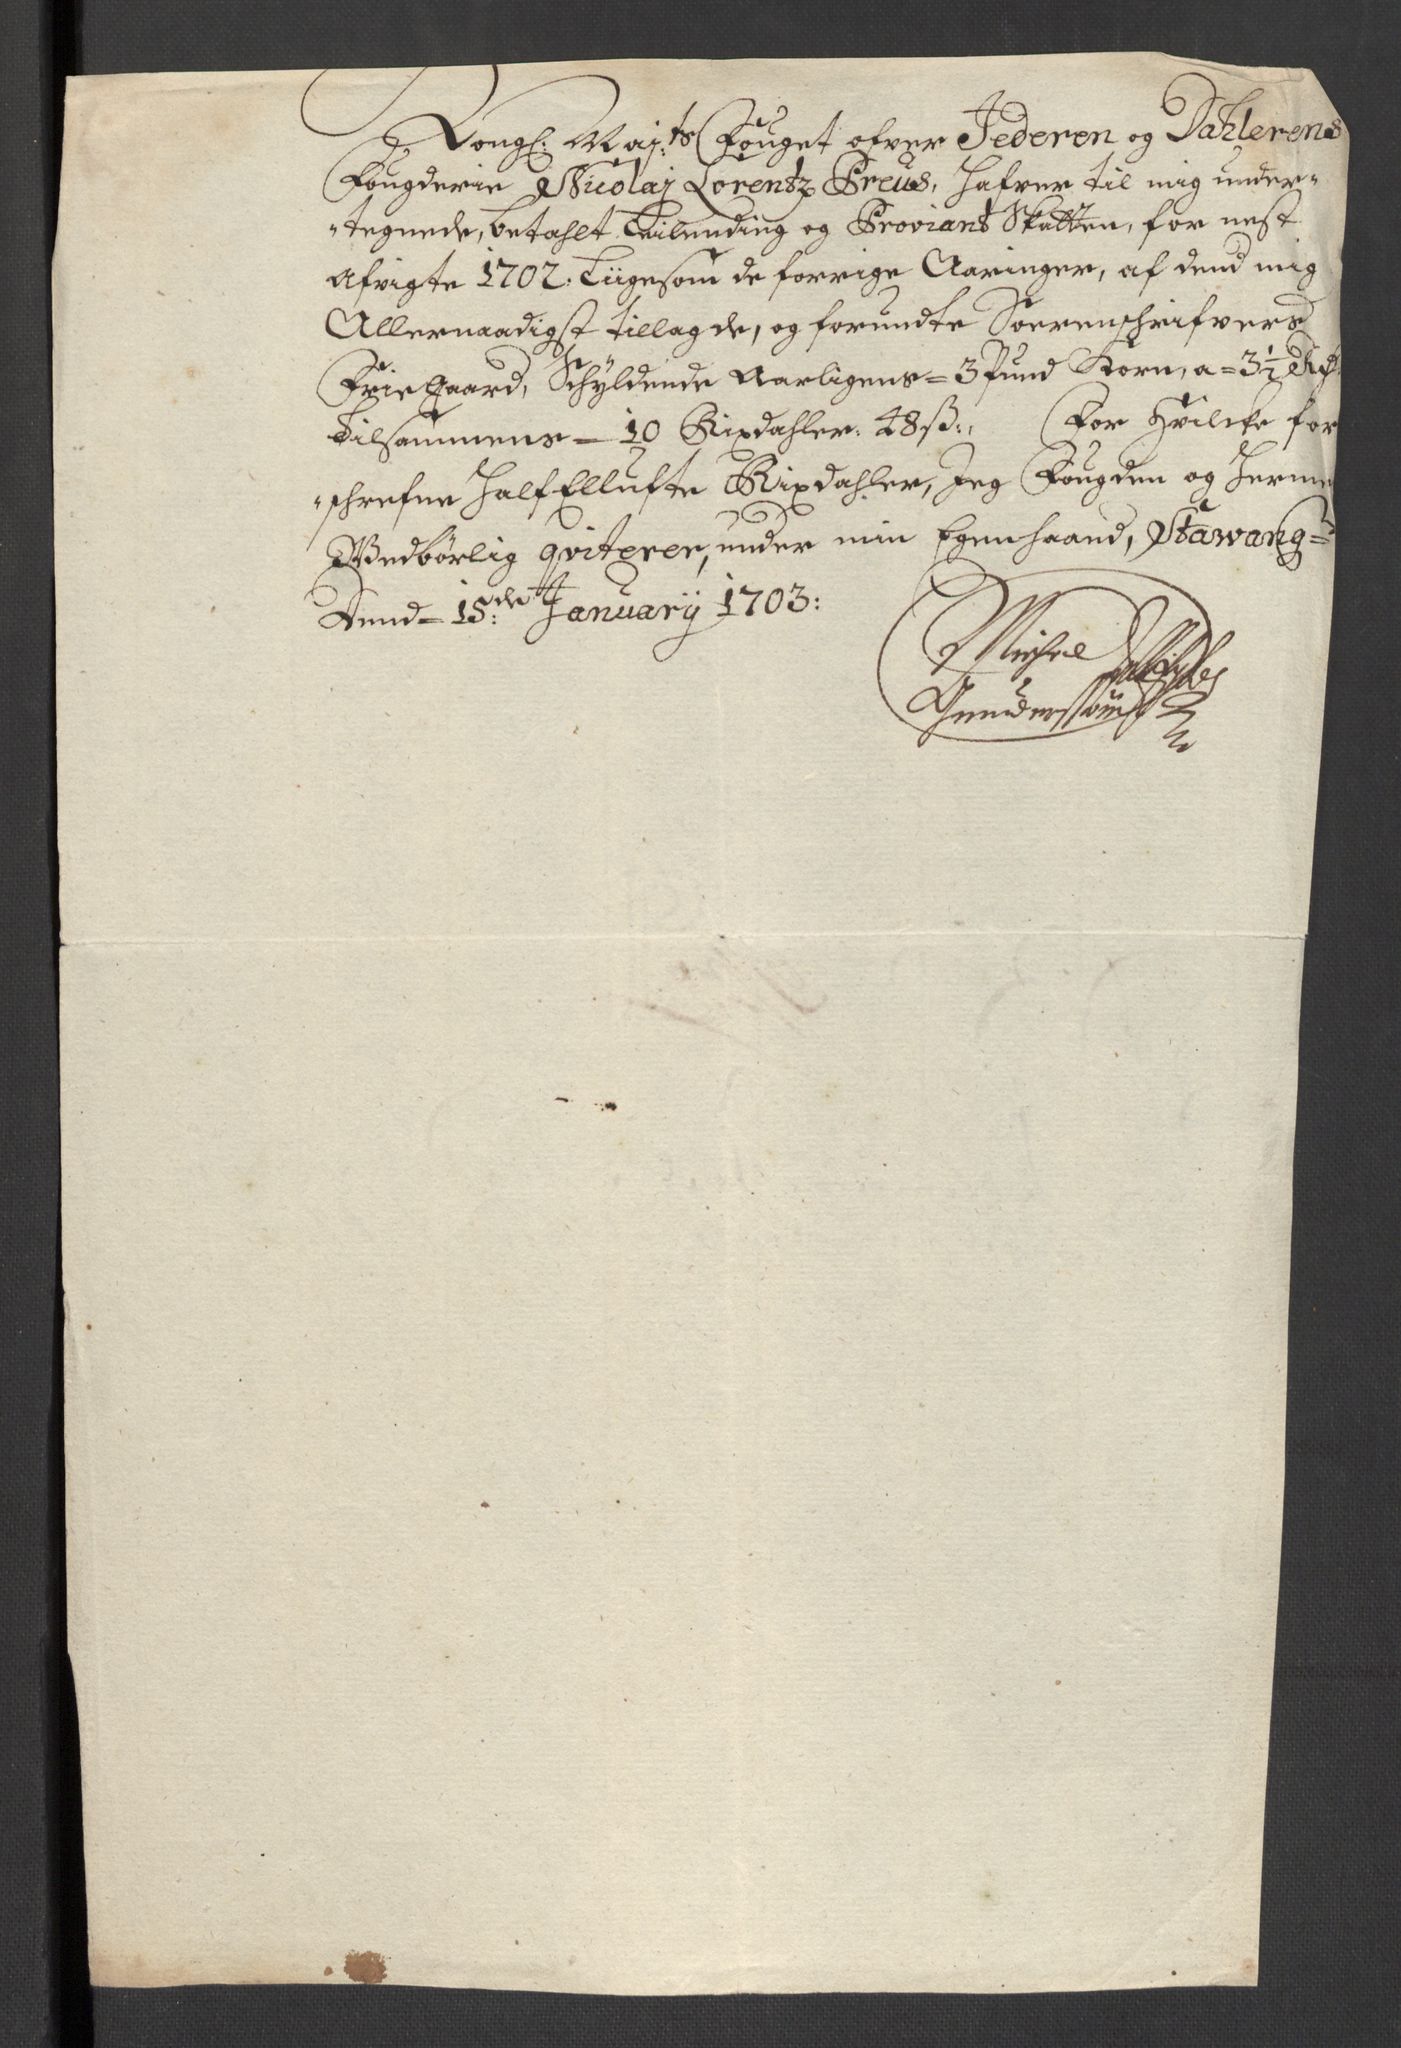 Kongl: Maj:ts Fouget ofver Jederen og Dahlerens
Fougderie Nicolaj Lorentz Preus, hafver til mig under-
-tegnede, betahlt Leilending og Proviant Skatten, for nest
Afvigte 1702. Liigesom de forrige Aaringer, af dend mig
Allernaadigst tillagde, og forundte Sorenschrifvers
Frie Gaard, Schyldende Aarligens = 3 Pund Korn, a = 3½ Rdr.
Tilsammens = 10 Rixdahler: 48 ß:, For Hvilcke for
-schrefne Half Ellufte Rixdahler, Jeg Fougden og herme
Wedbörlig qviterer, under min Egen haand, Stawang=
Dend = 15:de January 1703:
Michel
Gundersøn